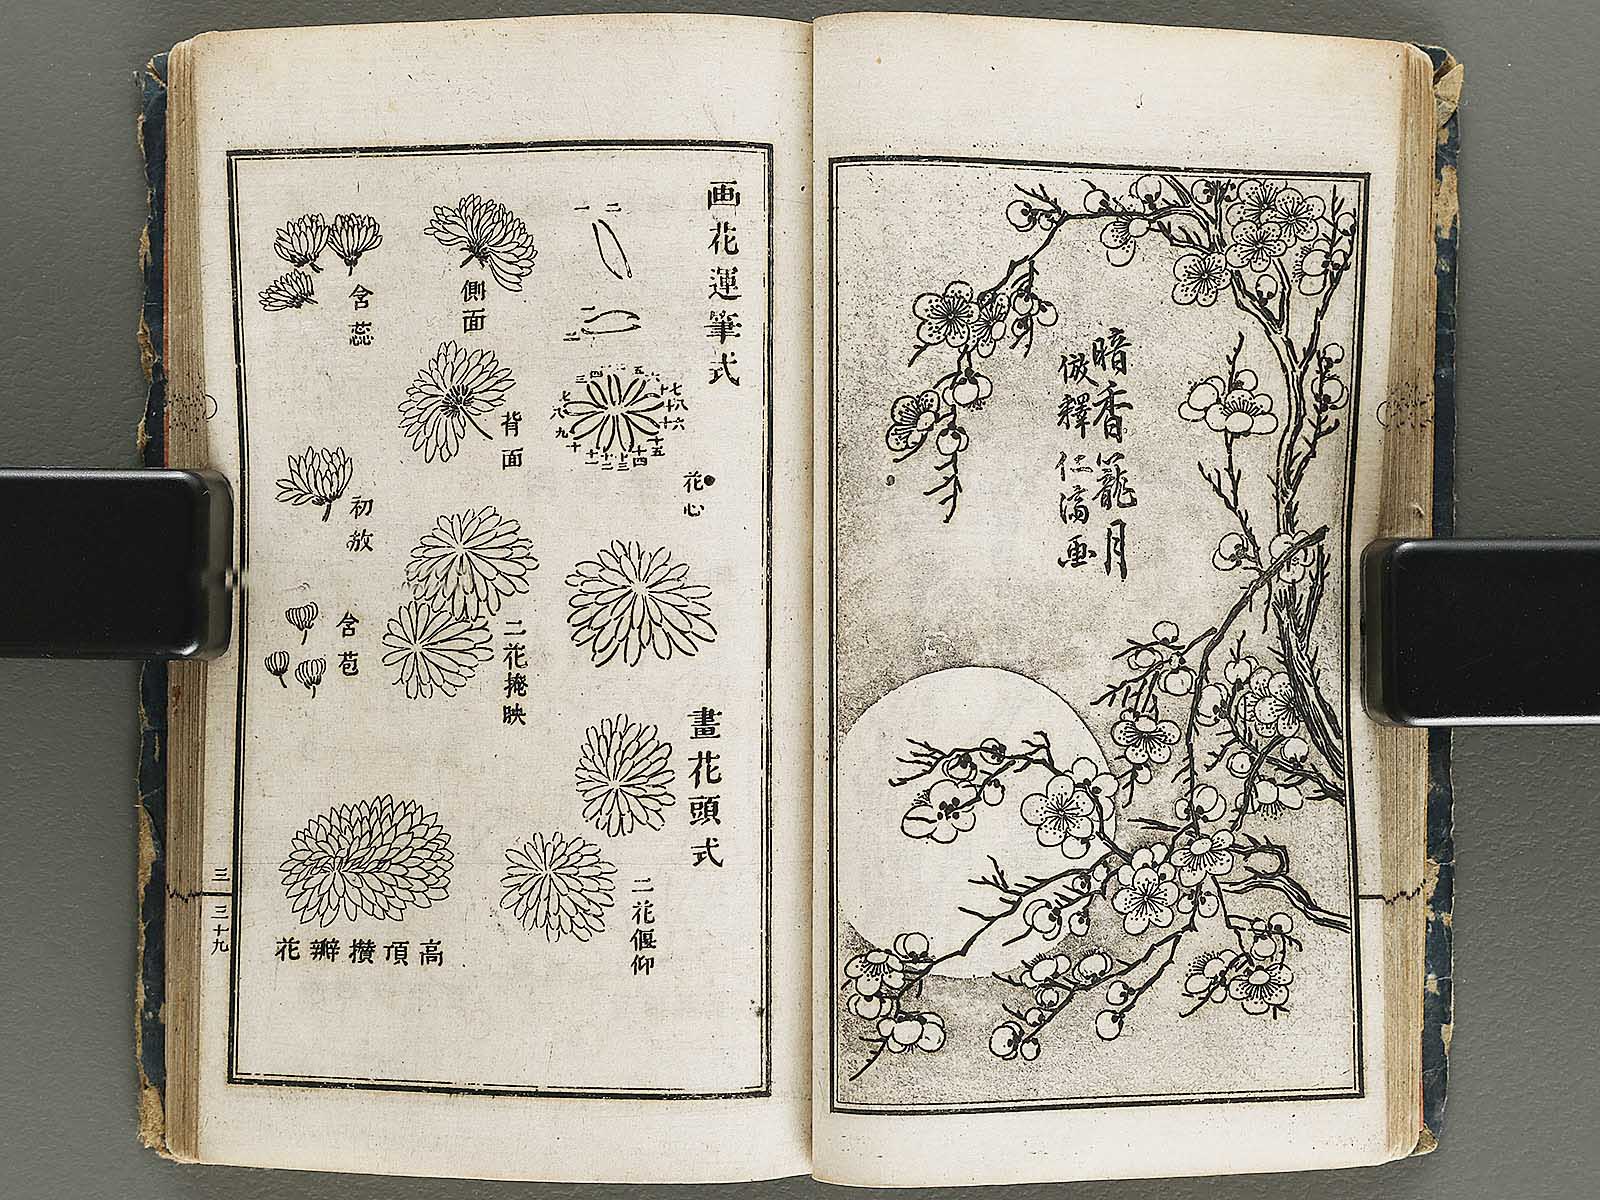 暗香籠月
倣釋仁濟畫
画花運筆式
一 二
一 二
三 四 五 六
七 八 九 十
十一 十二 十三 十四
十五 十六 十七 十八
花心
畫花頭式
二花偃仰
側面
背面
二花掩映
含蕊
初放
含苞
高頂攢瓣花
三 三十九